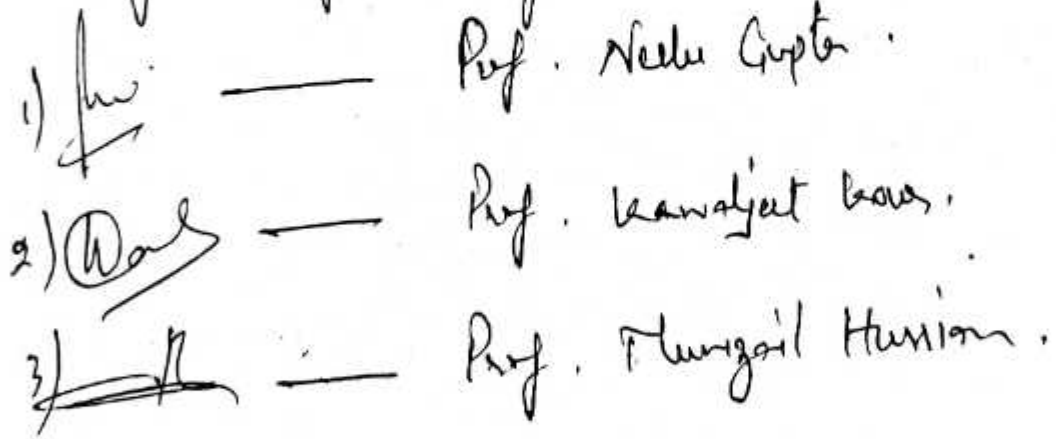 1) — Prof. Neelu Gupta.
2) — Prof. Kawaljeet Kaur.
3) — Prof. Hussian.